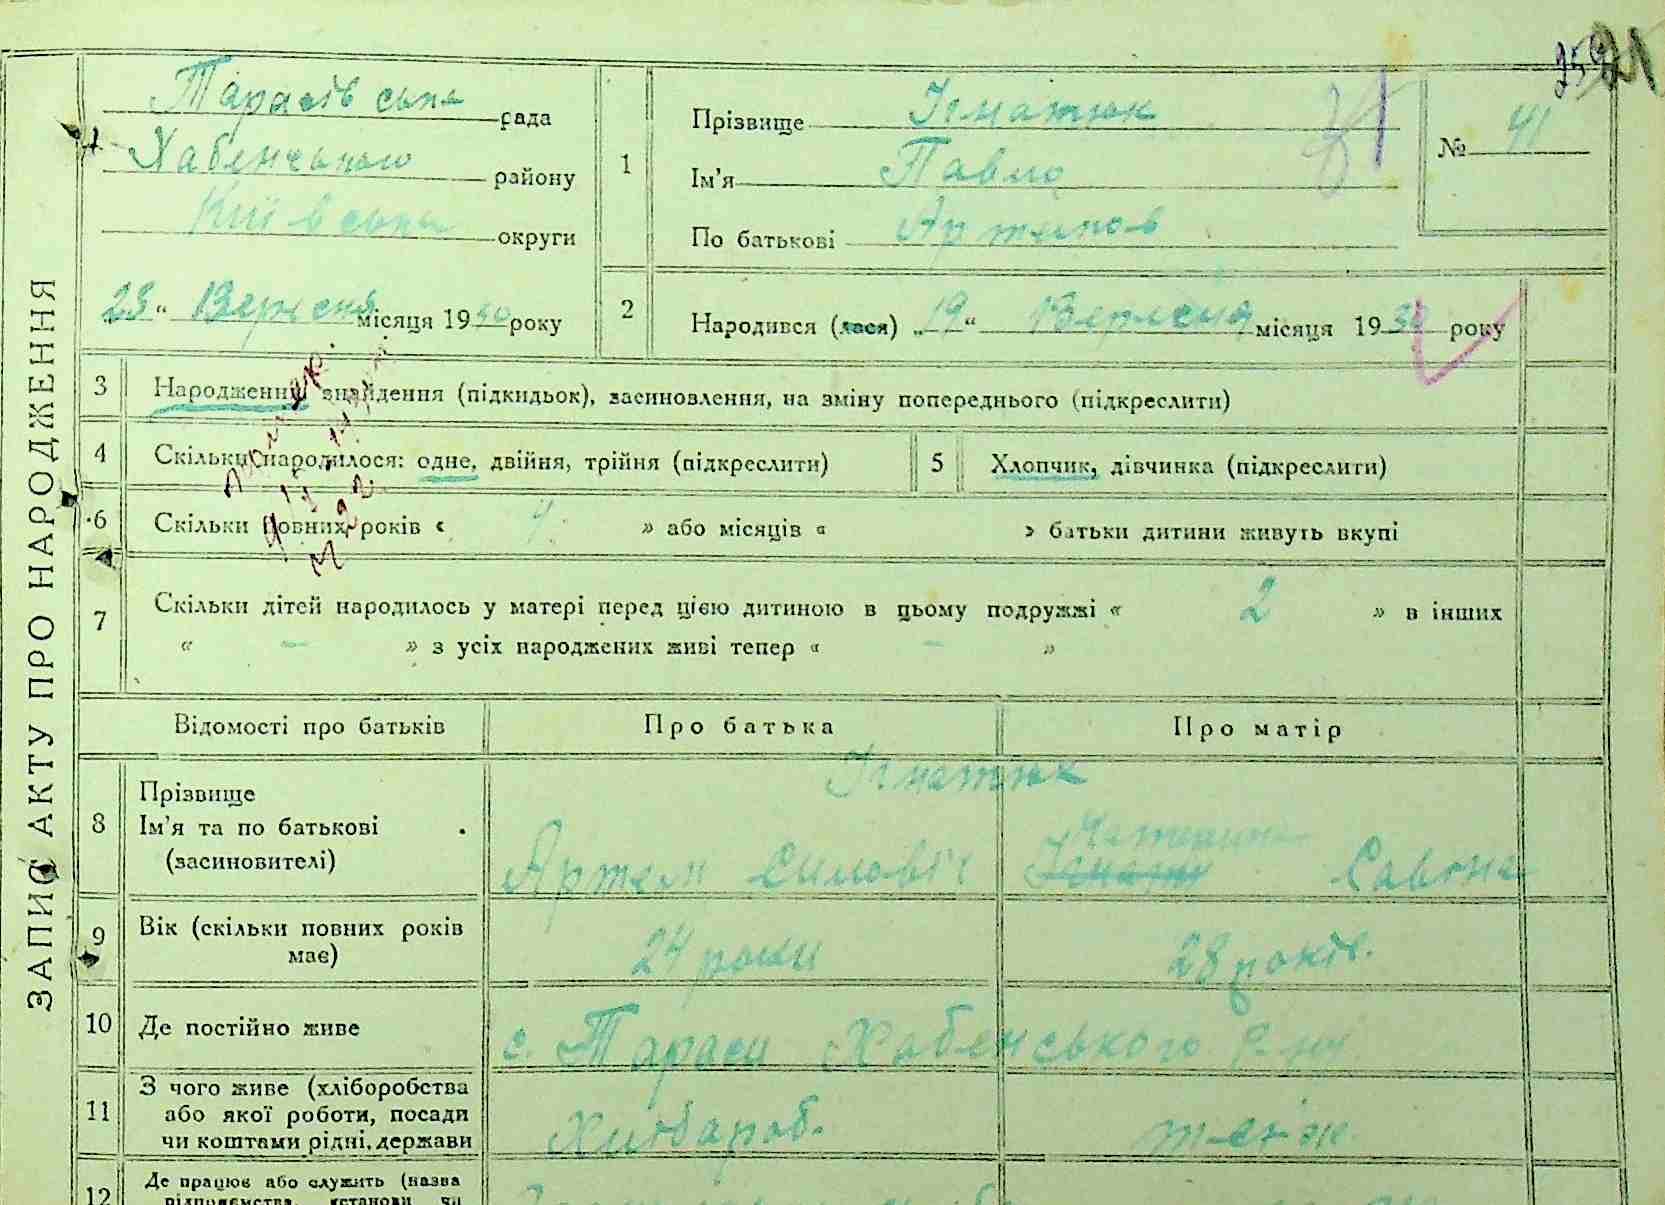 ЗАПИС АКТУ ПРО НАРОДЖЕННЯ
Тарасівська рада
Хабенського району
Київська округи
23 " Вересня місяця 1930 року
1
Прізвище Ігнатюк
Ім'я Павло
По батькові Артемов
№ 41
2
Народився (лася) „ 19 “ Вересня місяця 1930 року
3 Народження, знайдення (підкидьок), засиновлення, на зміну попереднього (підкреслити)
4 Скільки народилося: одне, двійня, трійня (підкреслити)
5 Хлопчик, дівчинка (підкреслити)
6 Скільки повних років « 4 » або місяців « » батьки дитини живуть вкупі
7 Скільки дітей народилось у матері перед цією дитиною в цьому подружжі « 2 » в інших
« – » з усіх народжених живі тепер « – »
Відомості про батьків Про батька Про матір
8 Прізвище
Ім'я та по батькові
(засиновителі)
Ігнатюк
Артем Симович
Савона
9 Вік (скільки повних років має)
24 роки
28 років.
10 Де постійно живе
с. Тараси Хабенського р-ну
11 З чого живе (хліборобства
або якої роботи, посади
чи коштами рідні, держави
Хлібароб.
теж
12 Де працює або служить (назва
підприємства, установи чи